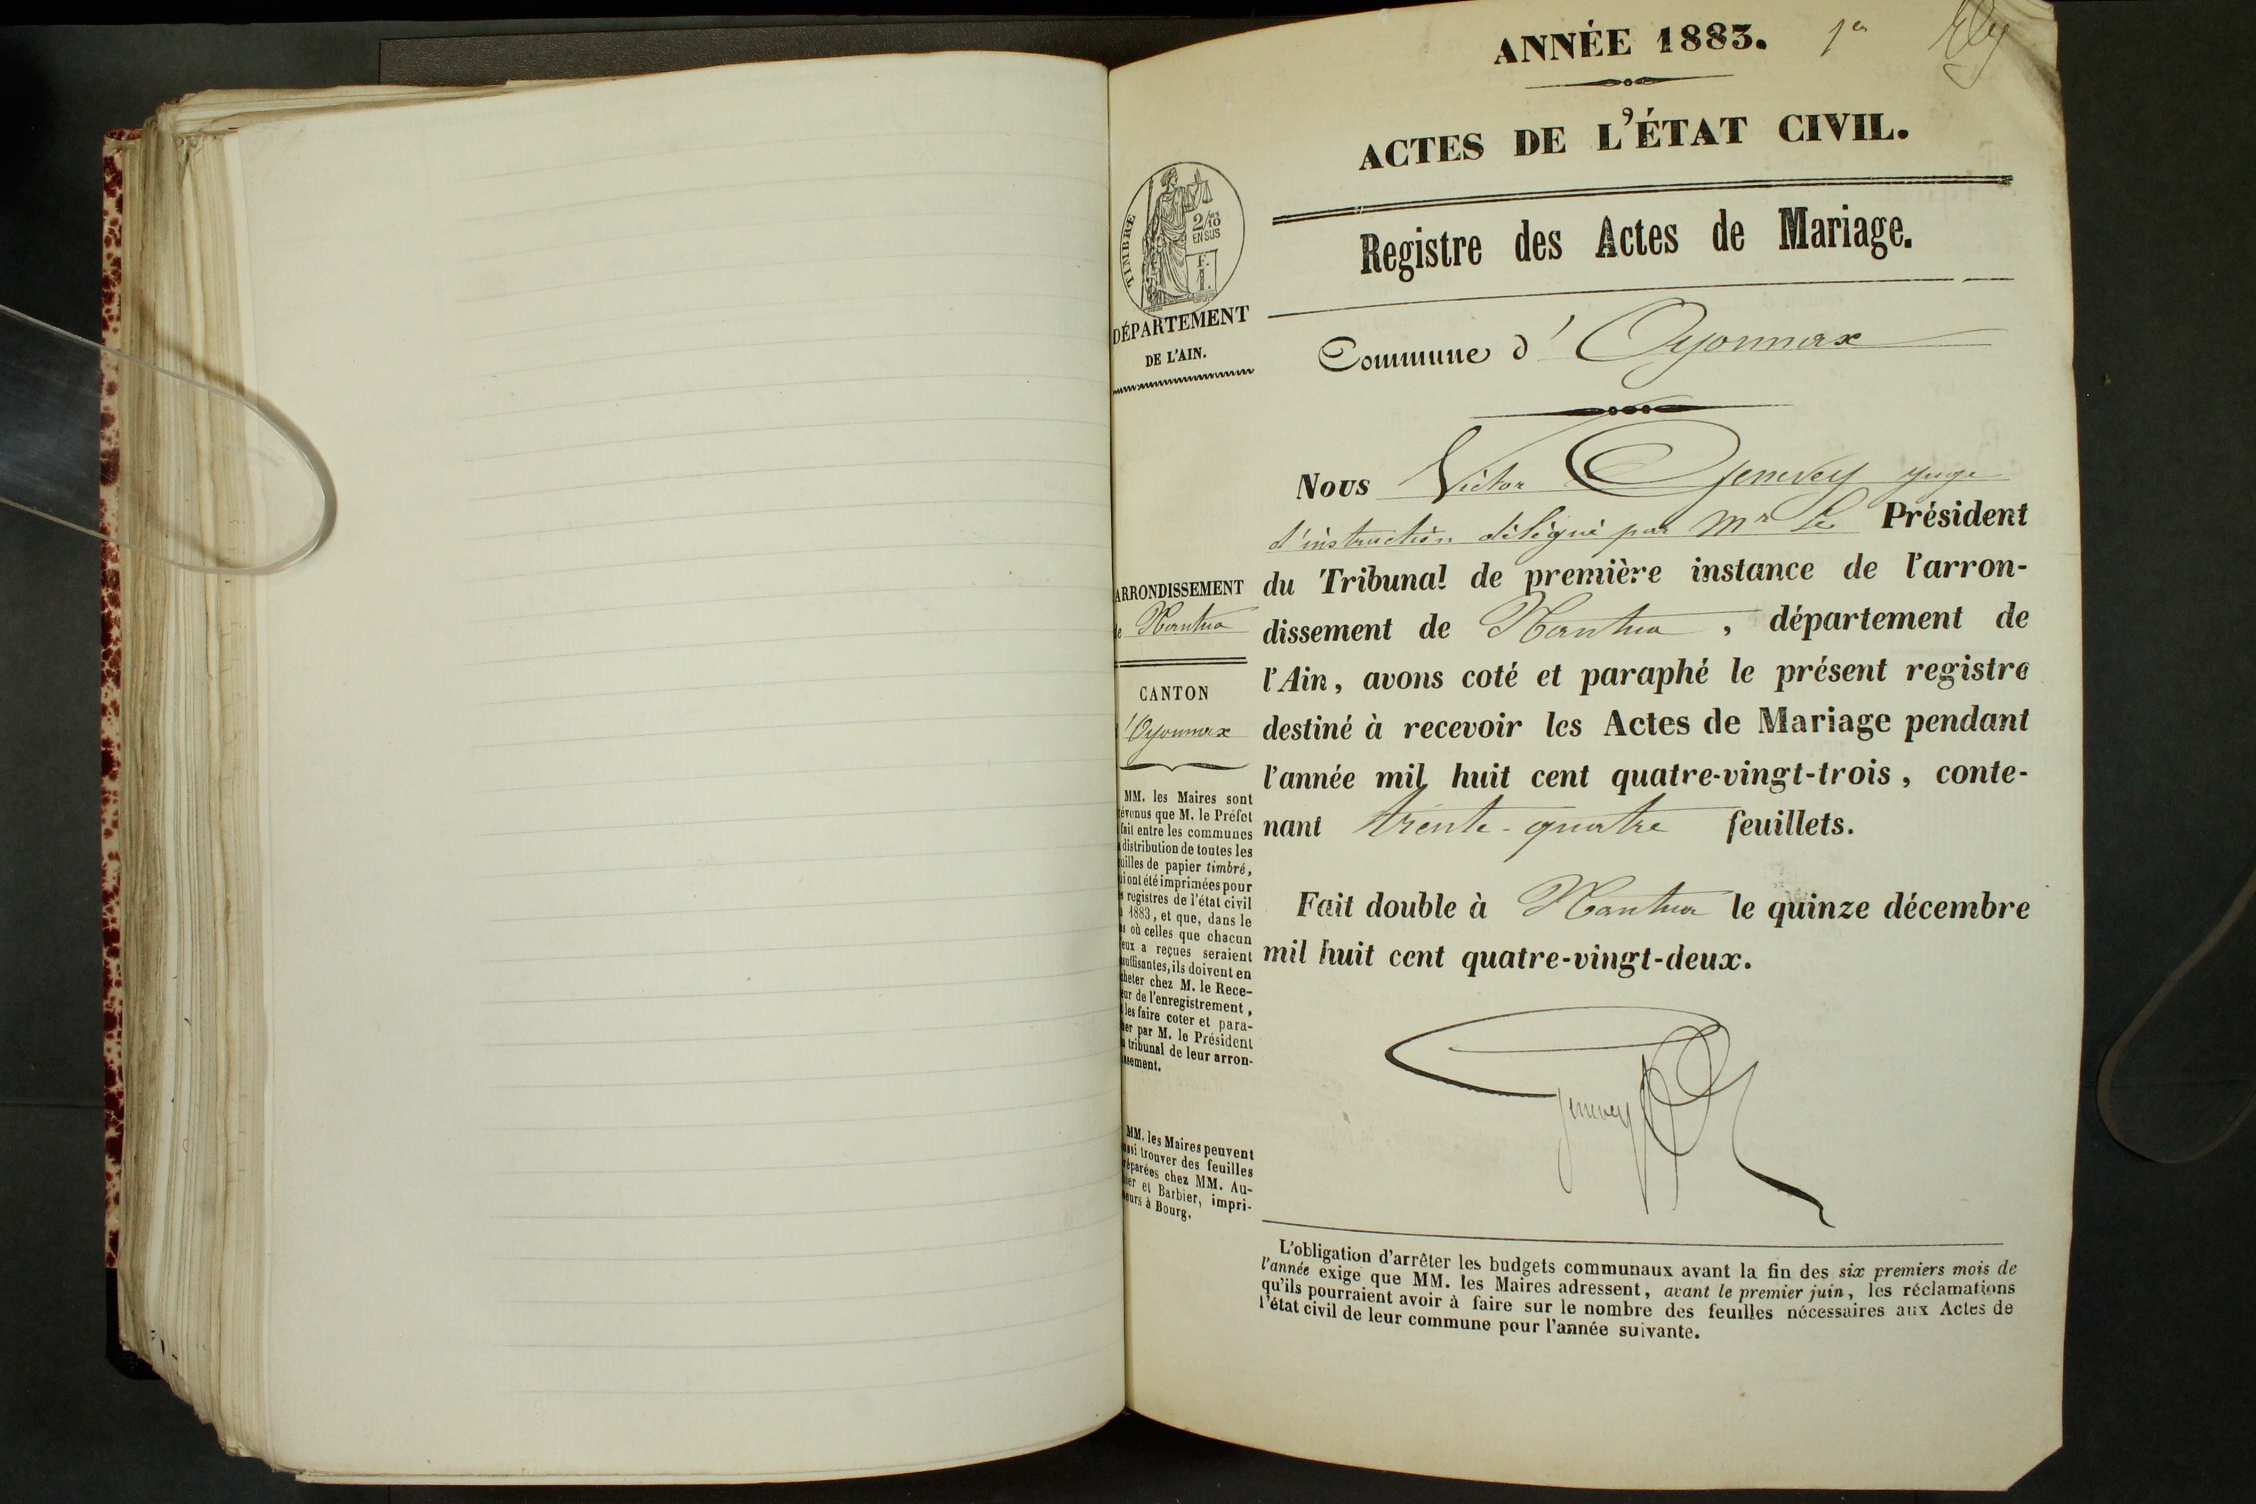 ANNÉE 1883. 1er
ACTES DE L'ÉTAT CIVIL.
Registre des Actes de Mariage.
Commune d' Oyonnax
Nous Victor Genevey juge
d'instruction délégué par Mr Le Président
du Tribunal de première instance de l'arron-
dissement de Nantua, département de
l'Ain, avons coté et paraphé le présent registre
destiné à recevoir les Actes de Mariage pendant
l'année mil huit cent quatre-vingt-trois, conte-
nant trente-quatre feuillets.
Fait double à Nantua le quinze décembre
mil huit cent quatre-vingt-deux.
Genevey
L'obligation d'arrêter les budgets communaux avant la fin des six premiers mois de
l'année exige que MM. les Maires adressent, avant le premier juin, les réclamations
qu'ils pourraient avoir à faire sur le nombre des feuilles nécessaires aux Actes de
l'état civil de leur commune pour l'année suivante.
TIMBRE
2/10
EN SUS
F.
1.
DÉPARTEMENT
DE L'AIN.
ARRONDISSEMENT
de Nantua
CANTON
d'Oyonnax
MM. les Maires sont
évenus que M. le Préfet
fait entre les communes
distribution de toutes les
uilles de papier timbré,
i ont été imprimées pour
s registres de l'état civil
1883, et que, dans le
s où celles que chacun
eux a reçues seraient
suffisantes, ils doivent en
heter chez M. le Rece-
eur de l'enregistrement,
les faire coter et para-
her par M. le Président
tribunal de leur arron-
ssement.
MM. les Maires peuvent
ussi trouver des feuilles
réparées chez MM. Au-
ier et Barbier, impri-
eurs à Bourg.